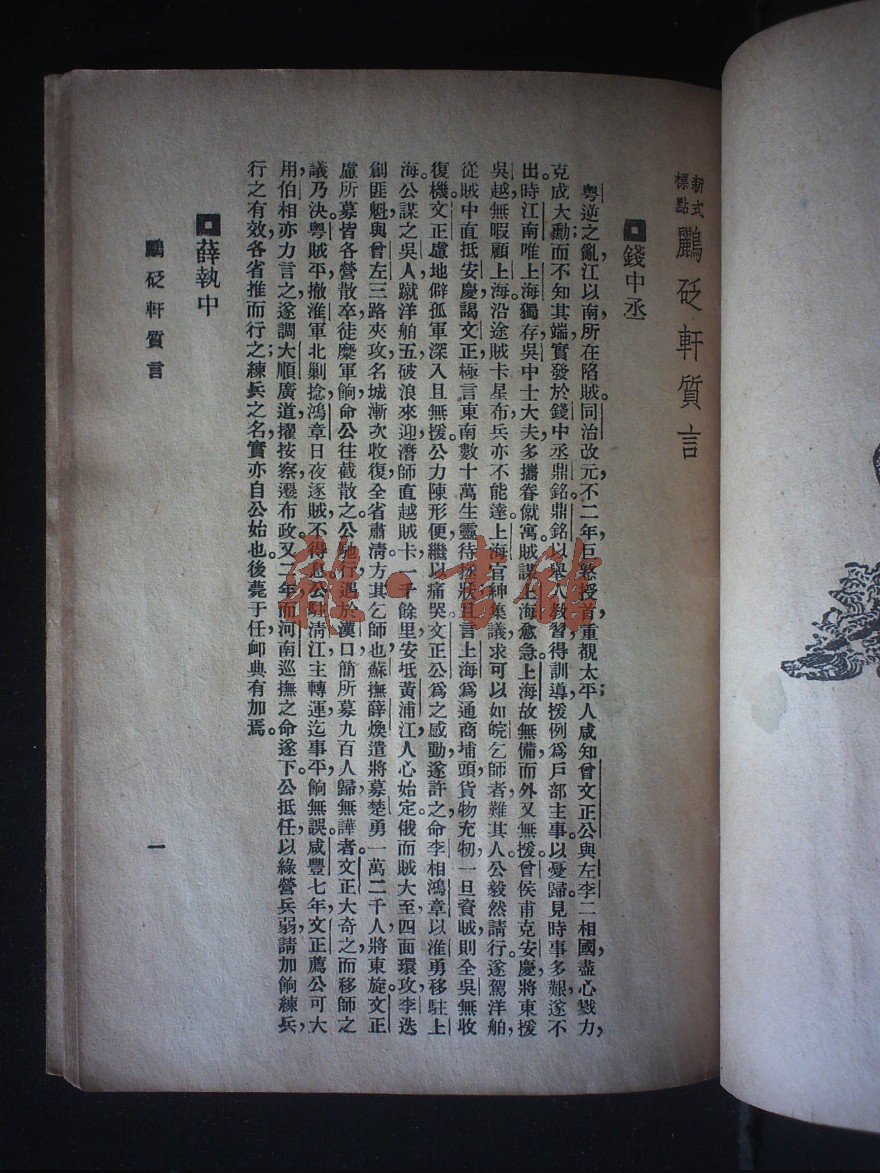 新式標點 鸝砭軒質言
錢中丞
粵逆之亂，江以南所在陷賊，同治改元，不二年，巨憝授首，重覩太平；人咸知曾文正公與左李二相國，盡心戮力，
克成大勳；而不知其端實發於錢中丞鼎銘。鼎銘以舉人教習得訓導，援例為戶部主事。以憂歸。見時事多艱，遂不
出。時江南唯上海獨存，吳中士大夫，多攜眷僦寓。賊謀上海愈急。上海故無備，而外又無援。曾侯甫克安慶，將東援
吳越，無暇顧上海。沿途賊卡星布，兵亦不能達。上海官紳集議，求可以如皖乞師者，難其人。公毅然請行。遂駕洋舶，
從賊中直抵安慶，謁文正，極言東南數十萬生靈待拯狀。且言上海為通商埔頭，貨物充牣，一旦資賊，則全吳無收
復機。文正慮地僻，孤軍深入且無援。公力陳形便，繼以痛哭。文正公為之感動，遂許之，命李相鴻章以淮勇移駐上
海。公謀之吳人，蹴洋舶五，破浪來迎，潛師直越賊卡一千餘里，安坻黃浦江，人心始定。俄而賊大至，四面環攻，李迭
創匪魁，與曾左三路夾攻，名城漸次收復，全省肅清。方其乞師也，蘇撫薛煥遣將募楚勇一萬二千人，將東旋。文正
慮所募皆各營散卒，徒糜軍餉，命公往截散之。公馳行，遇於漢口，簡所募九百人，歸無譁者。文正大奇之，而移師之
議乃決。粵賊平，撤淮軍北剿捻，鴻章日夜逐賊，不得息，公駐清江主轉運，迄事平，餉無誤。咸豐七年，文正薦公可大
用，伯相亦力言之，遂調大順廣道，擢按察，遷布政。又二年，而河南巡撫之命遂下。公抵任，以綠營兵弱，請加餉練兵，
行之有效，各省推而行之；練兵之名實，亦自公始也。後薨于任，卹典有加焉。
薛執中
鸝砭軒質言
一
雜·書館